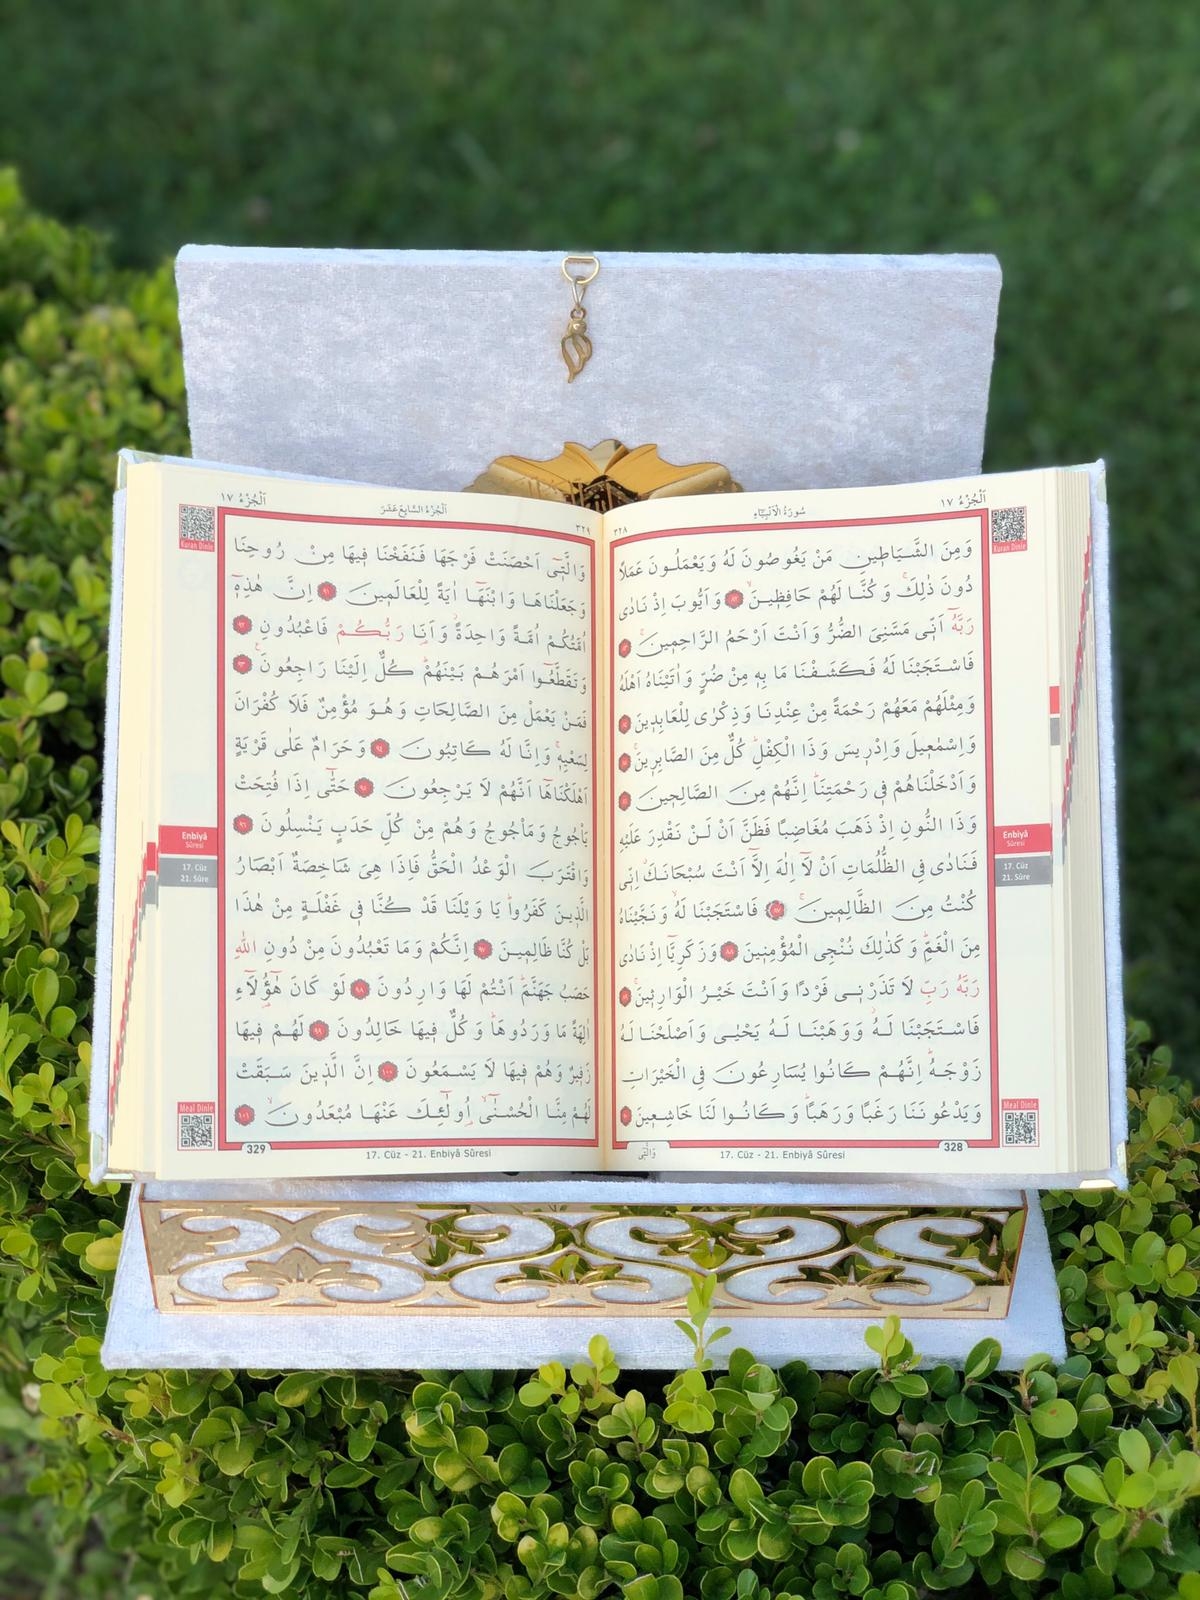 اَلْجُزْءُ ١٧
سُورَةُ الْاَنْبِيَاءِ
٣٢٨
Kuran Dinle
وَمِنَ الشَّيَاطٖينِ مَنْ يَغُوصُونَ لَهُ وَيَعْمَلُونَ عَمَلًا
دُونَ ذٰلِكَۚ وَكُنَّا لَهُمْ حَافِظٖينَۙ ٨٢ وَاَيُّوبَ اِذْ نَادٰى
رَبَّهُٓ اَنّٖى مَسَّنِىَ الضُّرُّ وَاَنْتَ اَرْحَمُ الرَّاحِمٖينَۚ ٨٣
فَاسْتَجَبْنَا لَهُ فَكَشَفْنَا مَا بِهٖ مِنْ ضُرٍّ وَاٰتَيْنَاهُ اَهْلَهُ
وَمِثْلَهُمْ مَعَهُمْ رَحْمَةً مِنْ عِنْدِنَا وَذِكْرٰى لِلْعَابِدٖينَ ٨٤
وَاِسْمٰعٖيلَ وَاِدْرٖيسَ وَذَا الْكِفْلِۜ كُلٌّ مِنَ الصَّابِرٖينَۚ ٨٥
وَاَدْخَلْنَاهُمْ فٖى رَحْمَتِنَاۜ اِنَّهُمْ مِنَ الصَّالِحٖينَ ٨٦
وَذَا النُّونِ اِذْ ذَهَبَ مُغَاضِبًا فَظَنَّ اَنْ لَنْ نَقْدِرَ عَلَيْهِ
فَنَادٰى فِى الظُّلُمَاتِ اَنْ لَٓا اِلٰهَ اِلَّٓا اَنْتَ سُبْحَانَكَۗ اِنّٖى
كُنْتُ مِنَ الظَّالِمٖينَۚ ٨٧ فَاسْتَجَبْنَا لَهُۙ وَنَجَّيْنَاهُ
مِنَ الْغَمِّۜ وَكَذٰلِكَ نُنْجِى الْمُؤْمِنٖينَ ٨٨ وَزَكَرِيَّٓا اِذْ نَادٰى
رَبَّهُ رَبِّ لَا تَذَرْنٖى فَرْدًا وَاَنْتَ خَيْرُ الْوَارِثٖينَۚ ٨٩
فَاسْتَجَبْنَا لَهُۘ وَوَهَبْنَا لَهُ يَحْيٰى وَاَصْلَحْنَا لَهُ
زَوْجَهُۜ اِنَّهُمْ كَانُوا يُسَارِعُونَ فِى الْخَيْرَاتِ
وَيَدْعُونَنَا رَغَبًا وَرَهَبًاۜ وَكَانُوا لَنَا خَاشِعٖينَ ٩٠
Enbiyâ
Sûresi
17. Cüz
21. Sûre
Meal Dinle
328
17. Cüz - 21. Enbiyâ Sûresi
وَالَّتٖى
اَلْجُزْءُ السَّابِعَ عَشَرَ
اَلْجُزْءُ ١٧
٣٢٩
Kuran Dinle
وَالَّتٖٓى اَحْصَنَتْ فَرْجَهَا فَنَفَخْنَا فٖيهَا مِنْ رُوحِنَا
وَجَعَلْنَاهَا وَابْنَهَٓا اٰيَةً لِلْعَالَمٖينَ ٩١ اِنَّ هٰذِهٖٓ
اُمَّتُكُمْ اُمَّةً وَاحِدَةًۘ وَاَنَا۬ رَبُّكُمْ فَاعْبُدُونِ ٩٢
وَتَقَطَّعُٓوا اَمْرَهُمْ بَيْنَهُمْۜ كُلٌّ اِلَيْنَا رَاجِعُونَ۟ ٩٣
فَمَنْ يَعْمَلْ مِنَ الصَّالِحَاتِ وَهُوَ مُؤْمِنٌ فَلَا كُفْرَانَ
لِسَعْيِهٖۚ وَاِنَّا لَهُ كَاتِبُونَ ٩٤ وَحَرَامٌ عَلٰى قَرْيَةٍ
اَهْلَكْنَاهَٓا اَنَّهُمْ لَا يَرْجِعُونَ ٩٥ حَتّٰٓى اِذَا فُتِحَتْ
يَأْجُوجُ وَمَأْجُوجُ وَهُمْ مِنْ كُلِّ حَدَبٍ يَنْسِلُونَ ٩٦
وَاقْتَرَبَ الْوَعْدُ الْحَقُّ فَاِذَا هِىَ شَاخِصَةٌ اَبْصَارُ
الَّذٖينَ كَفَرُواۜ يَا وَيْلَنَا قَدْ كُنَّا فٖى غَفْلَةٍ مِنْ هٰذَا
بَلْ كُنَّا ظَالِمٖينَ ٩٧ اِنَّكُمْ وَمَا تَعْبُدُونَ مِنْ دُونِ اللّٰهِ
حَصَبُ جَهَنَّمَۜ اَنْتُمْ لَهَا وَارِدُونَ ٩٨ لَوْ كَانَ هٰٓؤُ۬لَٓاءِ
اٰلِهَةً مَا وَرَدُوهَاۜ وَكُلٌّ فٖيهَا خَالِدُونَ ٩٩ لَهُمْ فٖيهَا
زَفٖيرٌ وَهُمْ فٖيهَا لَا يَسْمَعُونَ ١٠٠ اِنَّ الَّذٖينَ سَبَقَتْ
لَهُمْ مِنَّا الْحُسْنٰٓىۙ اُو۬لٰٓئِكَ عَنْهَا مُبْعَدُونَۙ ١٠١
Enbiyâ
Sûresi
17. Cüz
21. Sûre
Meal Dinle
329
17. Cüz - 21. Enbiyâ Sûresi